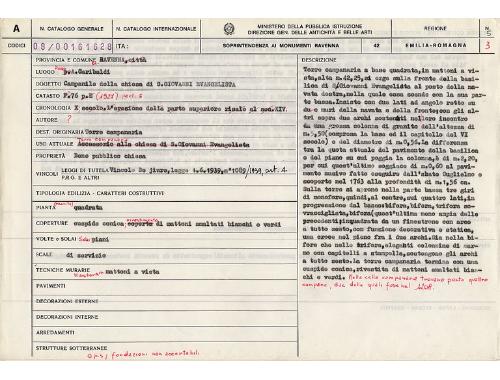 A
N. CATALOGO GENERALE
N. CATALOGO INTERNAZIONALE
MINISTERO DELLA PUBBLICA ISTRUZIONE
DIREZIONE GEN. DELLE ANTICHITÀ E BELLE ARTI
REGIONE
N.
5
CODICI
08/00161628
ITA:
SOPRINTENDENZA AI MONUMENTI RAVENNA
42
EMILIA-ROMAGNA
3
PROVINCIA E COMUNE: RAVENNA, città
LUOGO P.A.Garibaldi
OGGETTO Campanile della chiesa di S.GIOVANNI EVANGELISTA
CATASTO F.76 p.E
CRONOLOGIA X secolo. L'erezione della parte superiore risale al sec.XIV.
AUTORE ?
DEST. ORIGINARIA Torre campanaria
USO ATTUALE Accessorio alla chiesa di S.Giovanni Evangelista
PROPRIETÀ Bene pubblico chiesa
VINCOLI
LEGGI DI TUTELA Vincolo De jure, legge 1.6.1939, n°1089/1939, art. 4
P.R.G. E ALTRI
TIPOLOGIA EDILIZIA - CARATTERI COSTRUTTIVI
PIANTA quadrata
COPERTURE cuspide conica coperta di mattoni smaltati bianchi e verdi
VOLTE o SOLAI Solai piani
SCALE di servizio
TECNICHE MURARIE mattoni a vista
PAVIMENTI
DECORAZIONI ESTERNE
DECORAZIONI INTERNE
ARREDAMENTI
STRUTTURE SOTTERRANEE
fondazioni non accertabili
DESCRIZIONE
Torre campanaria a base quadrata, in mattoni a
vista, alta m.42,25, si erge sulla fronte della basilica
di S.Giovanni Evangelista al posto della navata
destra, nella quale essa scende con la sua parte
bassa. Insiste con due lati ad angolo retto su
due muri della navata e della fronte; con gli altri
sopra due archi poggianti nell'oro incontro
da una grossa colonna di granito dell'altezza di
m.3,50 (compreso la base ed il capitello del VI
secolo) e del diametro di m.0,56. La differenza
tra la quota attuale del pavimento della basilica
e del piano su cui poggia la colonna, è di m.2,20,
sulla torre si aprono nella parte bassa tre giri
di monofore, quindi, al centro, sui quattro lati, in
vraccigliata, bifora, quest'ultima meno ampia delle
a tutto sesto, con funzione decorativa e statica,
una croce nel piano fra i due archi. Sia nelle bifore
che nelle trifore, eleganti colonnine di marmo
con capitelli a stampella, sostengono gli archi
a tutto sesto. La torre campanaria termina con una
cuspide conica, rivestita di mattoni smaltati bianchi
e verdi. Nella cella campanaria trovano posto quattro
campane, due delle quali fuse nel